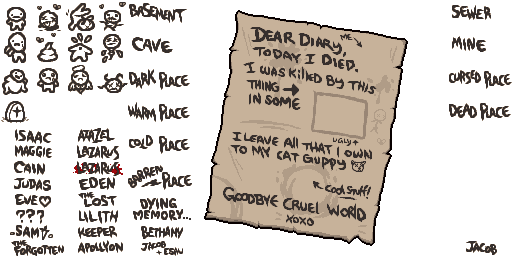 BASEMENT
CAVE
DARK PLACE
WARM PLACE
COLD PLACE
BARREN PLACE
DYING
MEMORY...
ISAAC
MAGGIE
CAIN
JUDAS
EVE♡
???
SAMS
THE
FORGOTTEN
AZAZEL
LAZARUS
LAZARUS
EDEN
THE
LOST
LILITH
KEEPER
APOLLYON
BETHANY
JACOB
+ ESAU
DEAR DIARY,
ME
TODAY I DIED.
I WAS KILLED BY THIS
THING →
IN SOME
UGLY
I LEAVE ALL THAT I OWN
TO MY CAT GUPPY
COOL STUFF!
GOODBYE CRUEL WORLD
XOXO
SEWER
MINE
CURSED PLACE
DEAD PLACE
JACOB